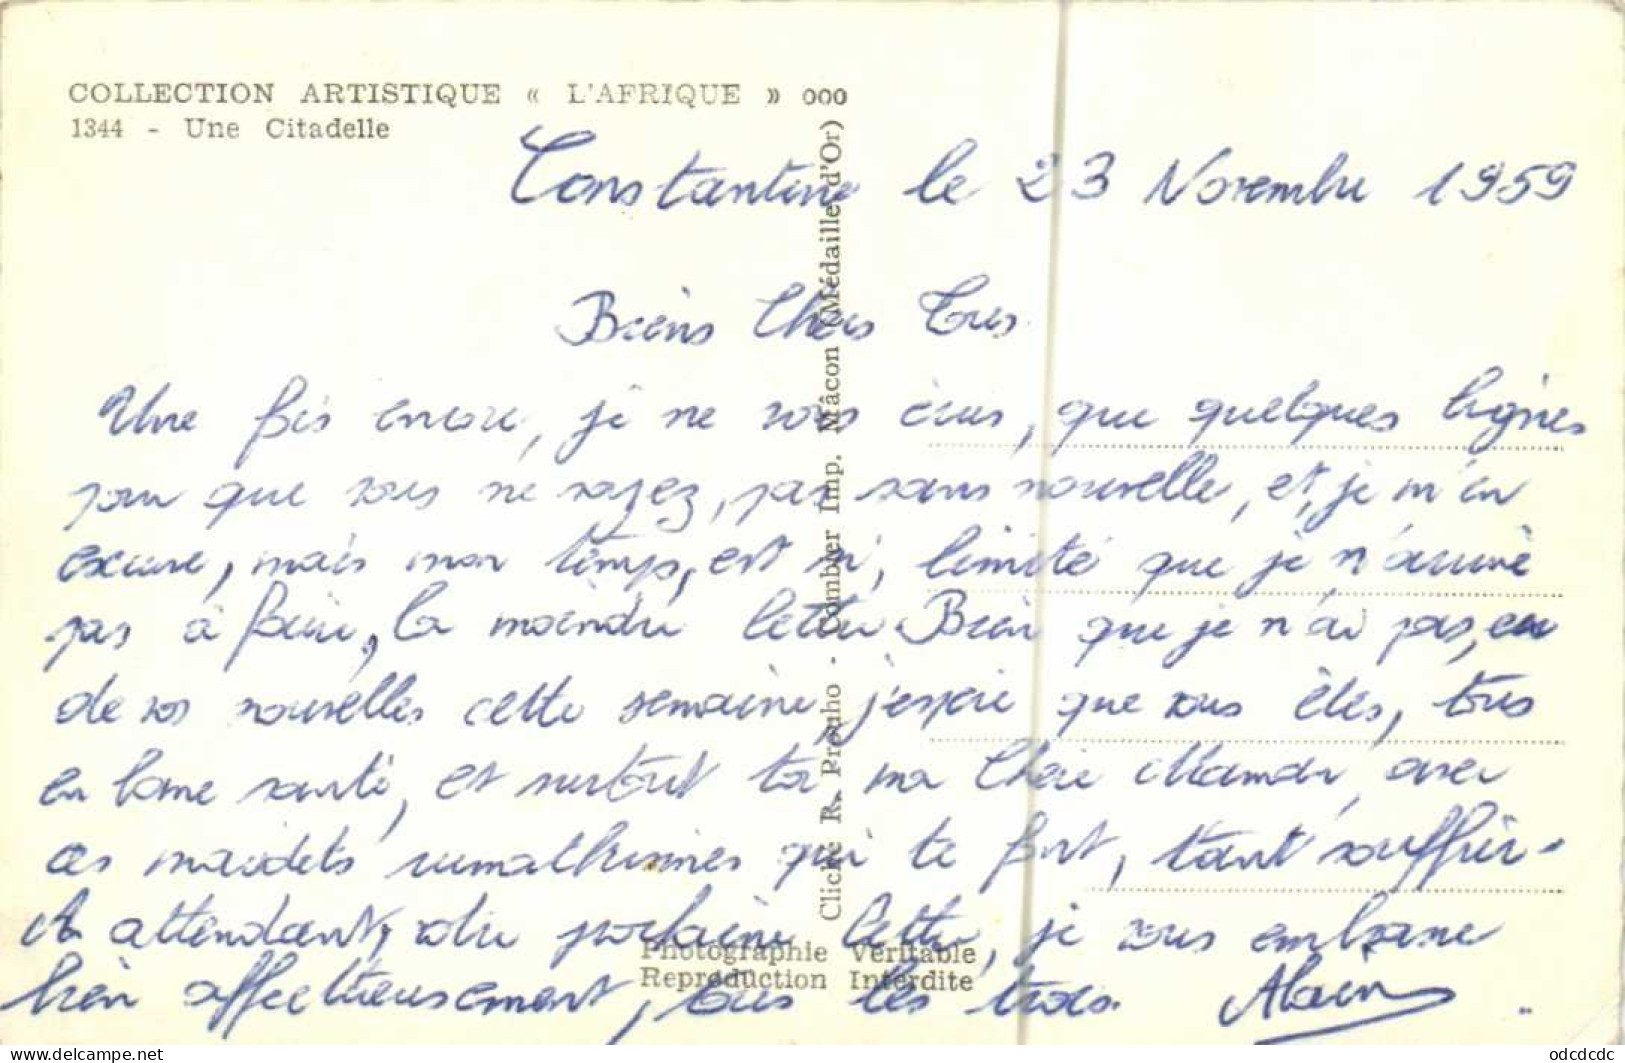 COLLECTION ARTISTIQUE « L'AFRIQUE » ooo
1344 - Une Citadelle
Constantine le 23 Novembre 1959
Biens Chers Tous
Une fois encore, je ne vous écris, que quelques lignes
pour que vous ne soyez, pas sans nouvelle, et, je m'en
excuse, mais mon temps, est si, limité que je n'arrive
pas à faire, la moindre lettre. Bien que je n'ai pas, eu
de vos nouvelles cette semaine, j'espère que vous êtes, tous
en bonne santé, et surtout toi ma Chère Maman, avec
ces maudits rumathismes qui te font, tant souffrir.
En attendant, votre prochaine lettre, je vous embrasse
bien affectueusement, tous les trois. Alain
Cliché R. Prouho - Combier Imp. Mâcon (Médaille d'Or)
Photographie Véritable
Reproduction Interdite
odcdcdc
www.delcampe.net